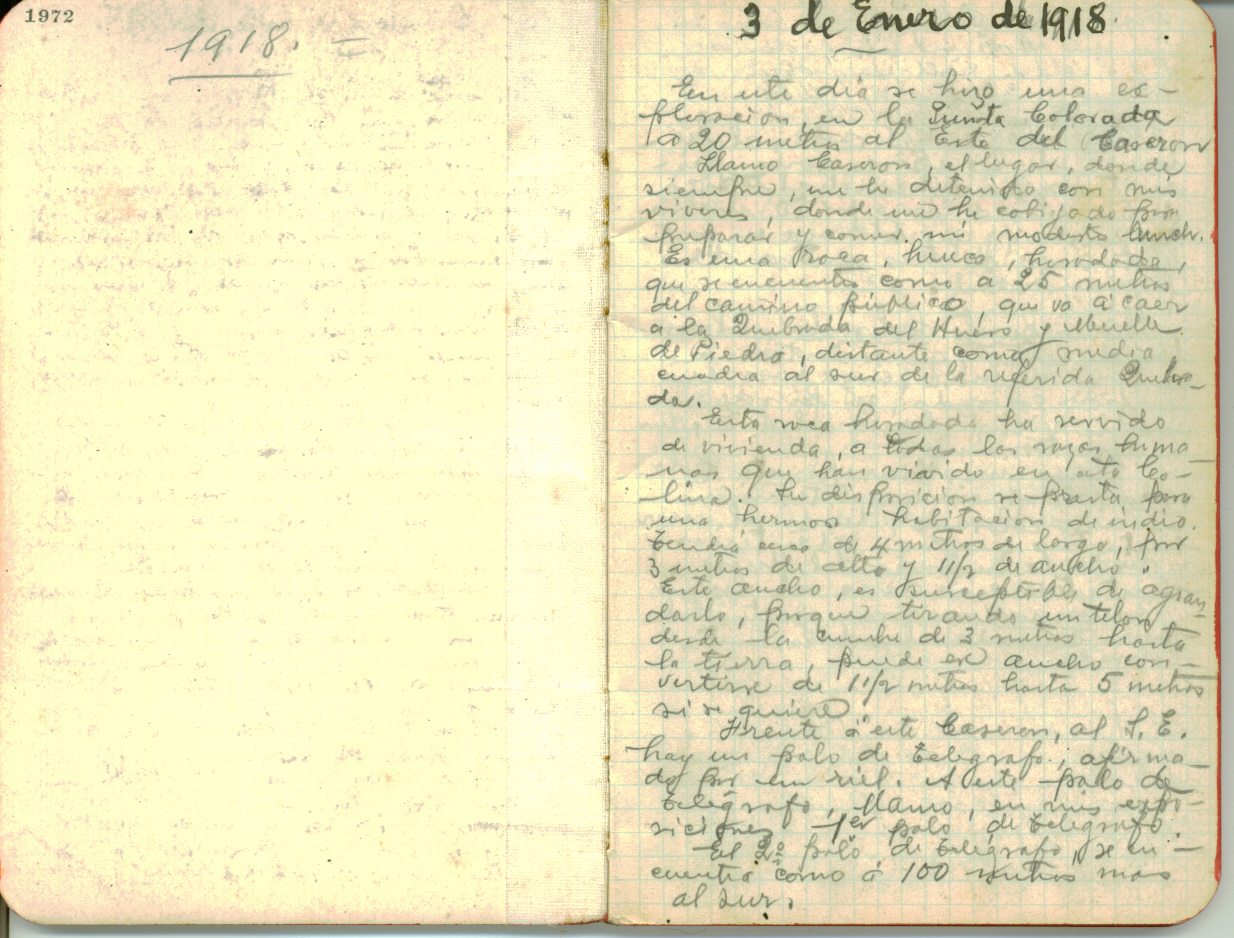 1972
1918. =
3 de Enero de 1918.
En este dia se hizo una ex-
ploracion, en la Punta Colorada
a 20 metros al Este del Caseron
Llamo Caseron, el lugar, donde
siempre, me he detenido con mis
viveres, donde me he cobijado para
preparar y comer mi modesto lunch.
Es una roca, hueca, horadada,
que se encuentra como a 25 metros
del camino público, que va á caer
a la Quebrada del Hueso y Muelle
de Piedra, distante como media
cuadra al sur de la referida Quebra-
da.
Esta roca horadada ha servido
de vivienda, a todas las razas huma-
nas que han vivido en esta Co-
lina. Su disposicion se presta para
una hermosa habitacion de indio.
Tendrá cerca de 4 metros de largo, por
3 metros de alto y 1 1/2 de ancho.
Este ancho, es susceptible de agran-
darlo, porque tirando un telon
desde la cumbre de 3 metros hasta
la tierra, puede ese ancho con-
vertirse de 1 1/2 metros hasta 5 metros
si se quiere.
Frente á este Caseron, al S.E.
hay un palo de telegrafo, afirma-
do por un riel. A este palo de
telégrafo, llamo, en mis expo-
siciones 1er palo de telegrafo.
El 2º palo de telégrafo, se en-
cuentra como á 100 metros mas
al sur.